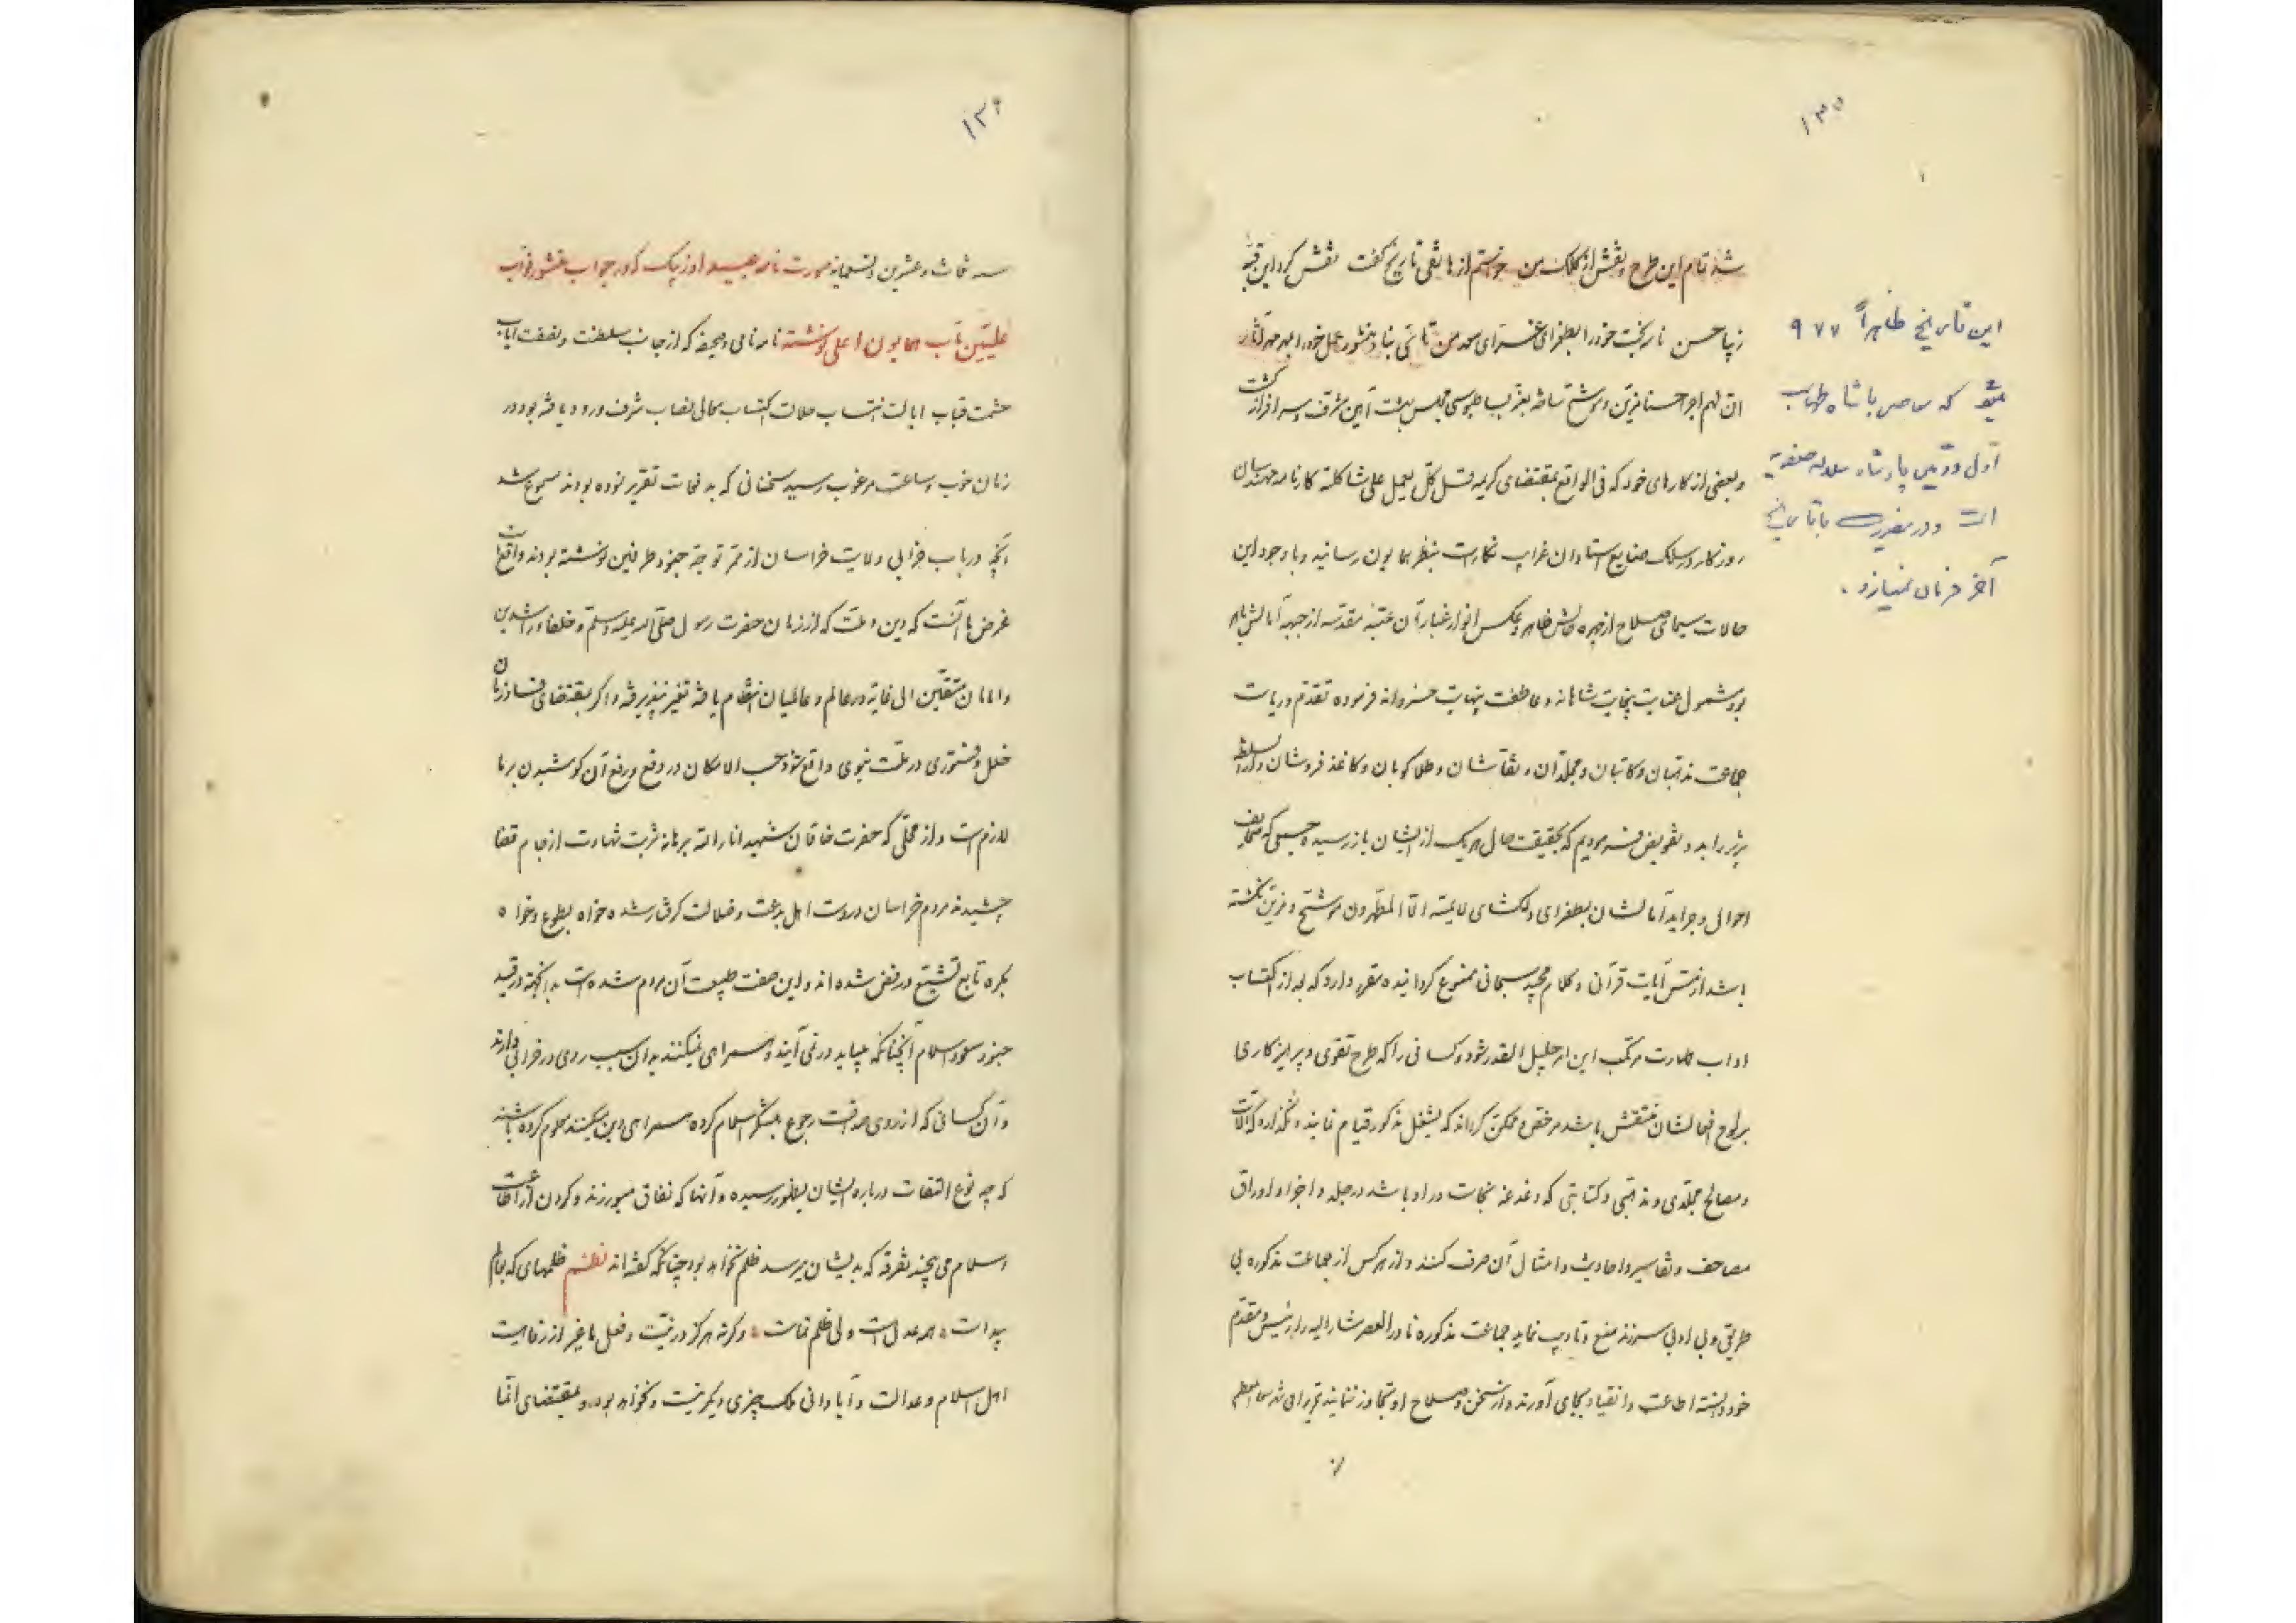 ۱۳۵
شد تمام این طرح و نقش از کلک من خواستم از هاتفی تاریخ گفت نقش کرد این قبه
زیبا حسن نار بخت خود را بطغرای غرای محمد من تائی بنا و منشور عمل خود را بمهر مهر آثار
ان لهم اجرا حسنا مزین و موشح ساخته بعز بساط بوسی مجلس بهشت آیین مشرف و سرافراز گشت
و بعضی از کارهای خود که فی الواقع بمقتضای کریمه قل کل یعمل علی شاکلته کارنامه مهندسان
روزکار و سلک صنایع استادان غرایب نکارست بنظر همایون رسانیده و با وجود این
حالات سیمای صلاح از چهره حالش ظاهر و عکس انوار غبار آن عتبه مقدسه از جبهه آمالش باهر
بود مشمول عنایت بیغایت شاهانه و عاطفت بینهایت خسروانه فرموده تقدم و ریاست
جماعت مذهبان و کاتبان و مجلدان و نقاشان و طلاکوبان و کاغذ فروشان دارالسلطنه
تبریز را بدو تفویض فرمودیم که بحقیقت حال هر یک از ایشان باز رسیده جمعی که صحایف
احوال و جراید آمالشان بطغرای دلکشای لا یمسه الا المطهرون موشح و مزین نکشته
باشد از مس آیات قرآنی و کلام مجید سبحانی ممنوع کردانیده مقرر دارد که بعد از اکتساب
اداب طهارت مرتکب این امر جلیل القدر شود و کسانی را که طرح تقوی و پرهیزکاری
بر لوح افعالشان منتقش باشد مرخص و ممکن کرداند که بشغل مذکور قیام نمایند و نکذارد که آلات
و مصالح مجلدی و مذهبی و کتابتی که دغدغه نجاست در او باشد در جلد و اجزا و اوراق
مصاحف و تفاسیر و احادیث و امثال آن صرف کنند و از هر کس از جماعت مذکوره بی
طریقی و بی ادبی سر زند منع و تادیب نماید جماعت مذکوره نادر العصر مشار الیه را رئیس و مقدم
خود دانسته اطاعت و انقیاد بجای آورند و از سخن و صلاح او تجاوز ننمایند تحریرا فی شهر شعبان المعظم
این تاریخ ظاهراً ۹۷۷
میشود که معاصر با شاه طهماسب
اول دومین پادشاه سلسله صفویه
است و در اینصورت با تاریخ
آخر فرمان نمیسازد .
۱۳۶
سنه ثمان و عشرین و تسعمائه صورت نامه عبید اوزبک که در جواب منشور نواب
علیین مآب همایون اعلی نوشته نامه نامی و صحیفه که از جانب سلطنت و نصفت ایاب
حشمت قباب ایالت انتساب جلالت اکتساب معالی نصاب شرف ورود یافته بود در
زمان خوب و ساعت مرغوب رسید سخنانی که بدفعات تقریر نموده بودند مسموع شد
آنچه در باب خرابی ولایت خراسان از ممر توجه جنود طرفین نوشته بودند واقعست
غرض ما آنست که دین و ملت که از زمان حضرت رسول صلی الله علیه و سلم و خلفاء راشدین
و امامان متقین الی غایه در عالم و عالمیان انتظام یافته تغییر نپذیرفته و اکر بمقتضای فساد زمان
خلل و فتوری در ملت نبوی واقع شود حسب الامکان در دفع و رفع آن کوشیدن بر ما
لازم است و از محلی که حضرت خاقان شهید انار الله برهانه شربت شهادت از جام قضا
چشیدند مردم خراسان در دست اهل بدعت و ضلالت کرفتار شده خواه بطوع و خواه
بکره تابع تشیع و رفض شده اند و این صفت طبیعت آن مردم شده است بدانجهة در قید
جنود مسعود اسلام آنچنانکه میباید در نمی آیند و همراهی نمیکنند بدان سبب روی در خرابی دارند
و آن کسانی که از روی صداقت رجوع بلشکر اسلام کرده همراهی دین میکنند معلوم کرده باشند
که چه نوع التفات درباره ایشان بظهور رسیده و آنها که نفاق میورزند و کردن از اطاعت
اسلام می پیچند تفرقه که بدیشان میرسد ظلم نخواهد بود چنانکه کفته اند نظم ظلمهای که بعالم
پیداست همه عدل است ولی ظلم نماست و کرنه هرکز در نیت و فعل ما غیر از رفاهیت
اهل اسلام و عدالت و آبادانی ملک چیزی دیکر نیست و نخواهد بود و بمقتضای انما